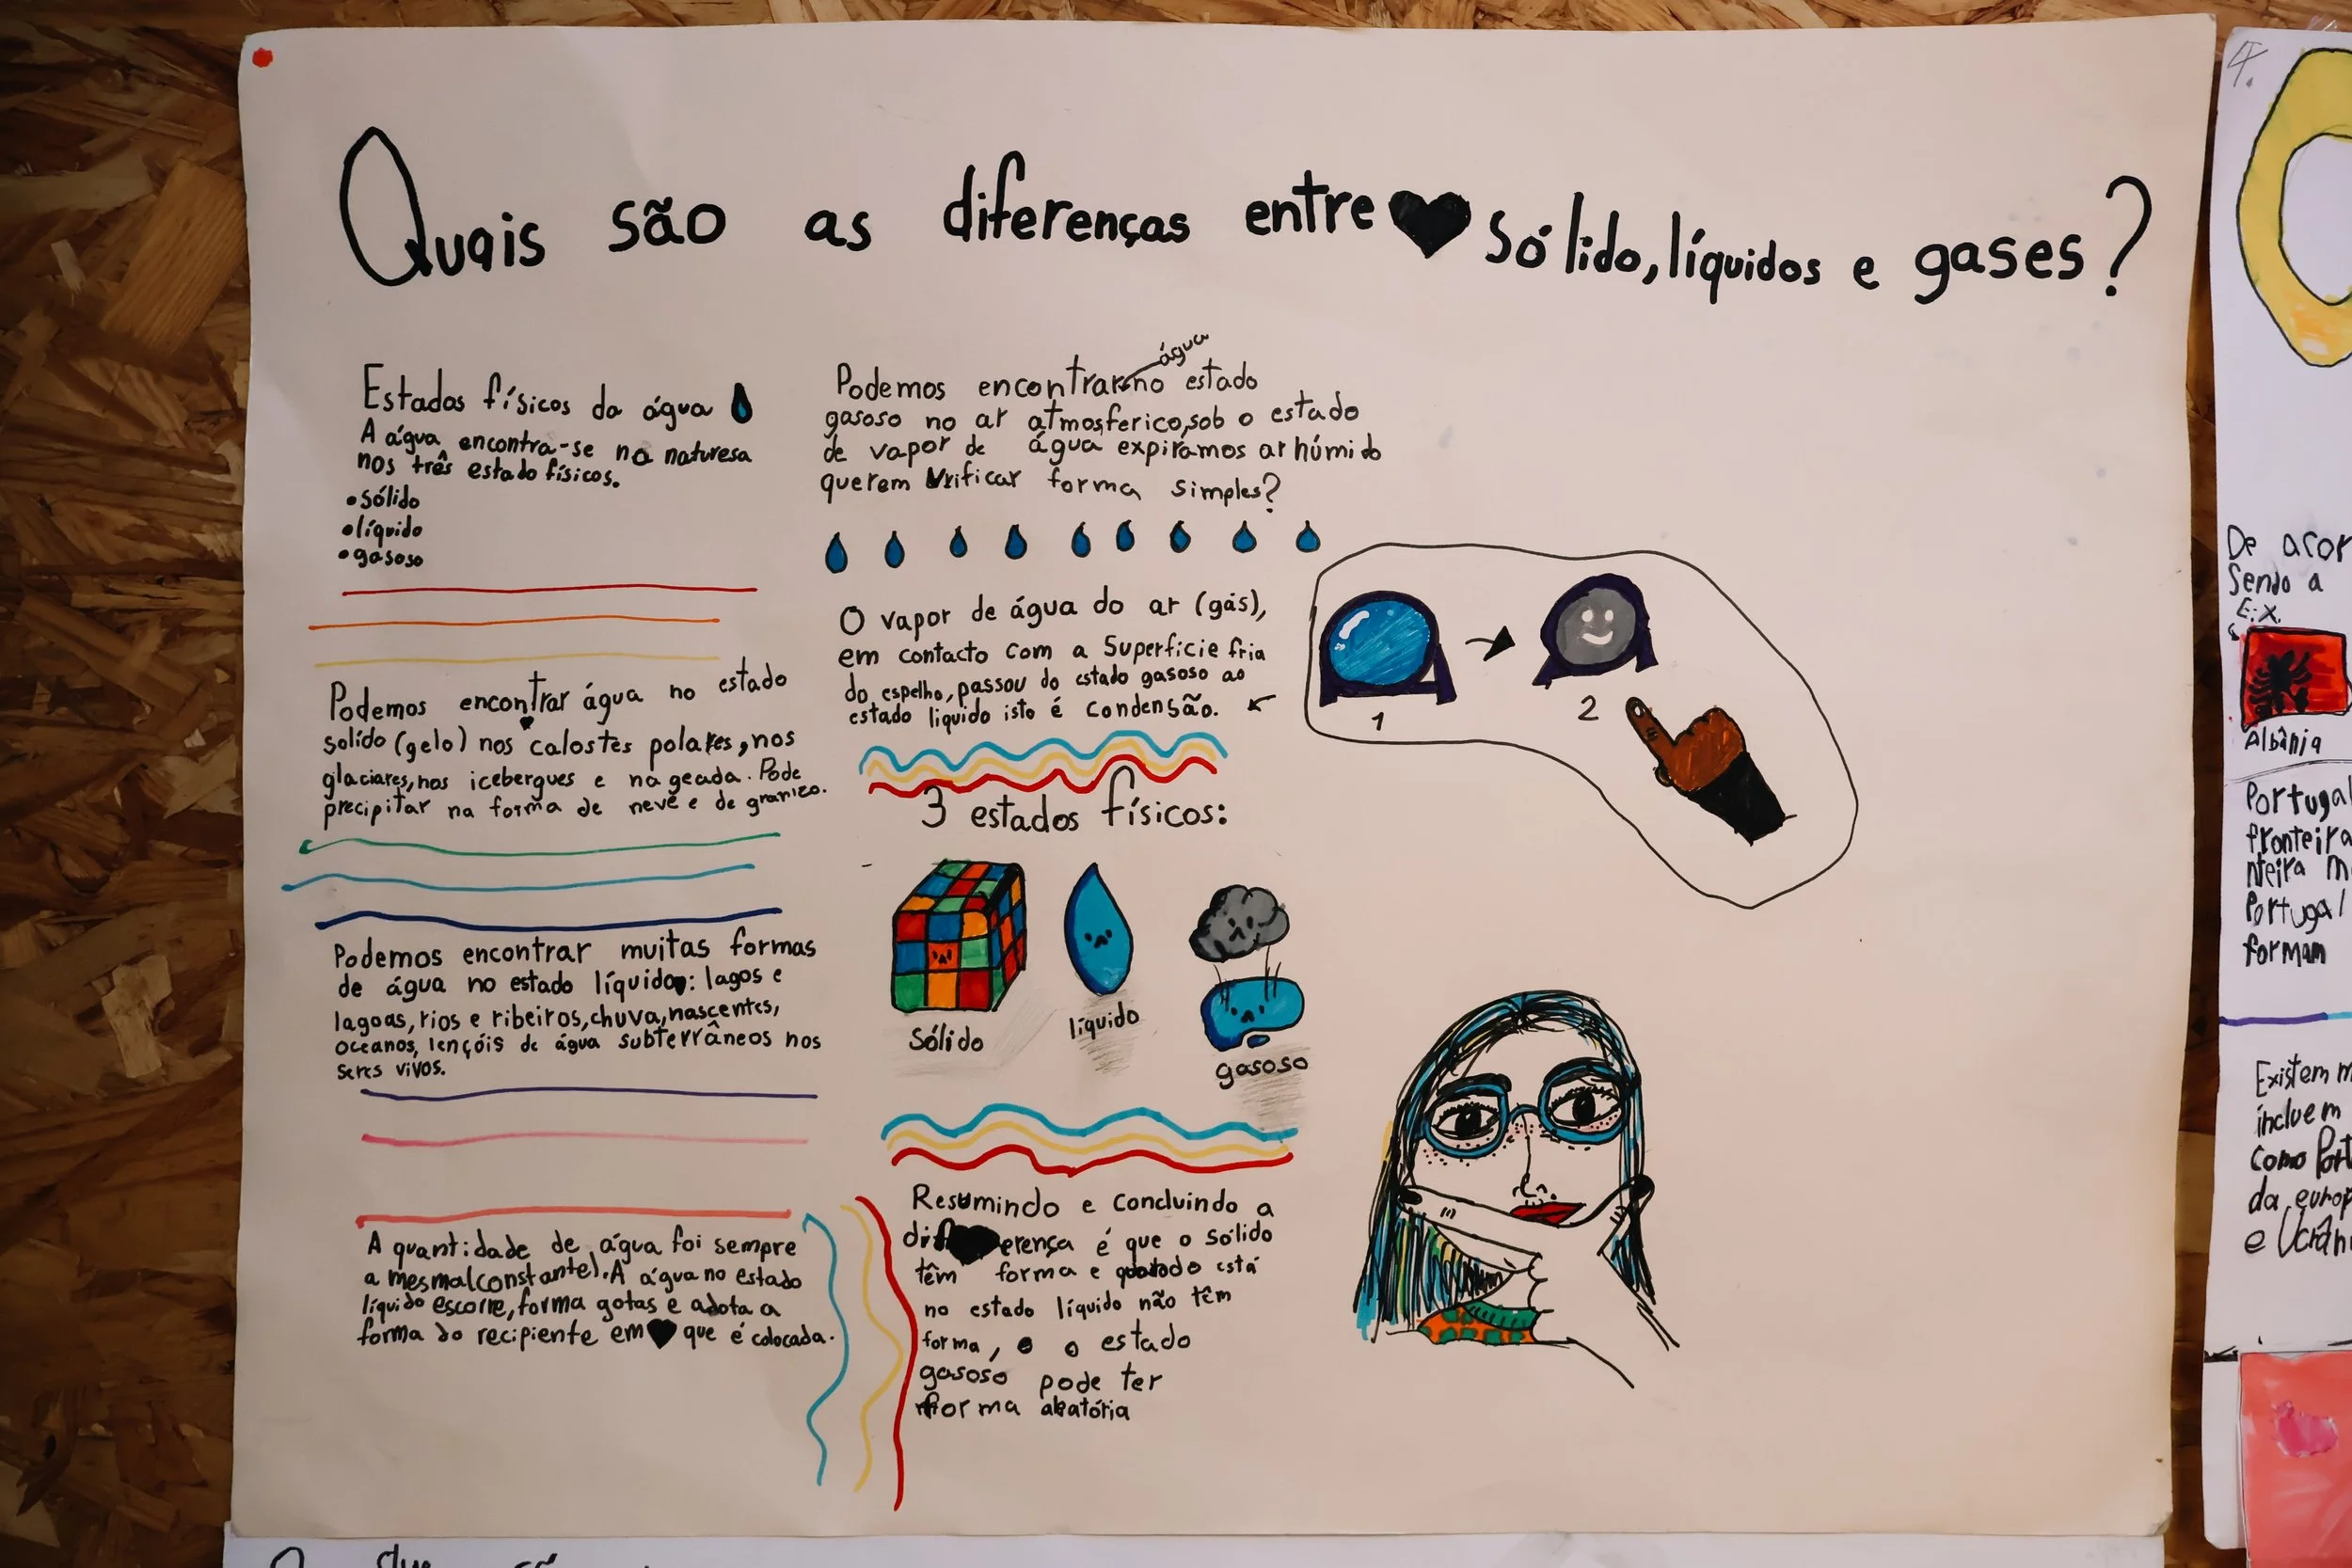 Quais são as diferenças entre Sólido, líquidos e gases?
Estados físicos da água
A água encontra-se na naturesa
nos três estado físicos.
•sólido
•líquido
•gasoso
Podemos encontrar água no estado
solido (gelo) nos calostes polares, nos
glaciares, nos icebergues e na geada. Pode
precipitar na forma de neve e de granizo.
Podemos encontrar muitas formas
de água no estado líquido: lagos e
lagoas, rios e ribeiros, chuva, nascentes,
oceanos, lençóis de água subterrâneos nos
seres vivos.
A quantidade de água foi sempre
a mesma(constante). A água no estado
líquido escorre, forma gotas e adota a
forma do recipiente em que é colocada.
água
Podemos encontrar no estado
gasoso no ar atmosferico, sob o estado
de vapor de água expirámos ar húmido
querem Verificar forma simples?
O vapor de água do ar (gás),
em contacto com a Superfície fria
do espelho, passou do estado gasoso ao
estado liquido isto é Condensão.
1
2
3 estados físicos:
Sólido
líquido
gasoso
Resumindo e concluindo a
diferença é que o sólido
têm forma e quando está
no estado líquido não têm
forma, e o estado
gasoso pode ter
forma aleatória
4.
De acor
Sendo a
E:x.
Albânia
Portugal
fronteira
nteira m
Portugal
formam
Existem m
incluem
como Port
da europ
e Ucrân